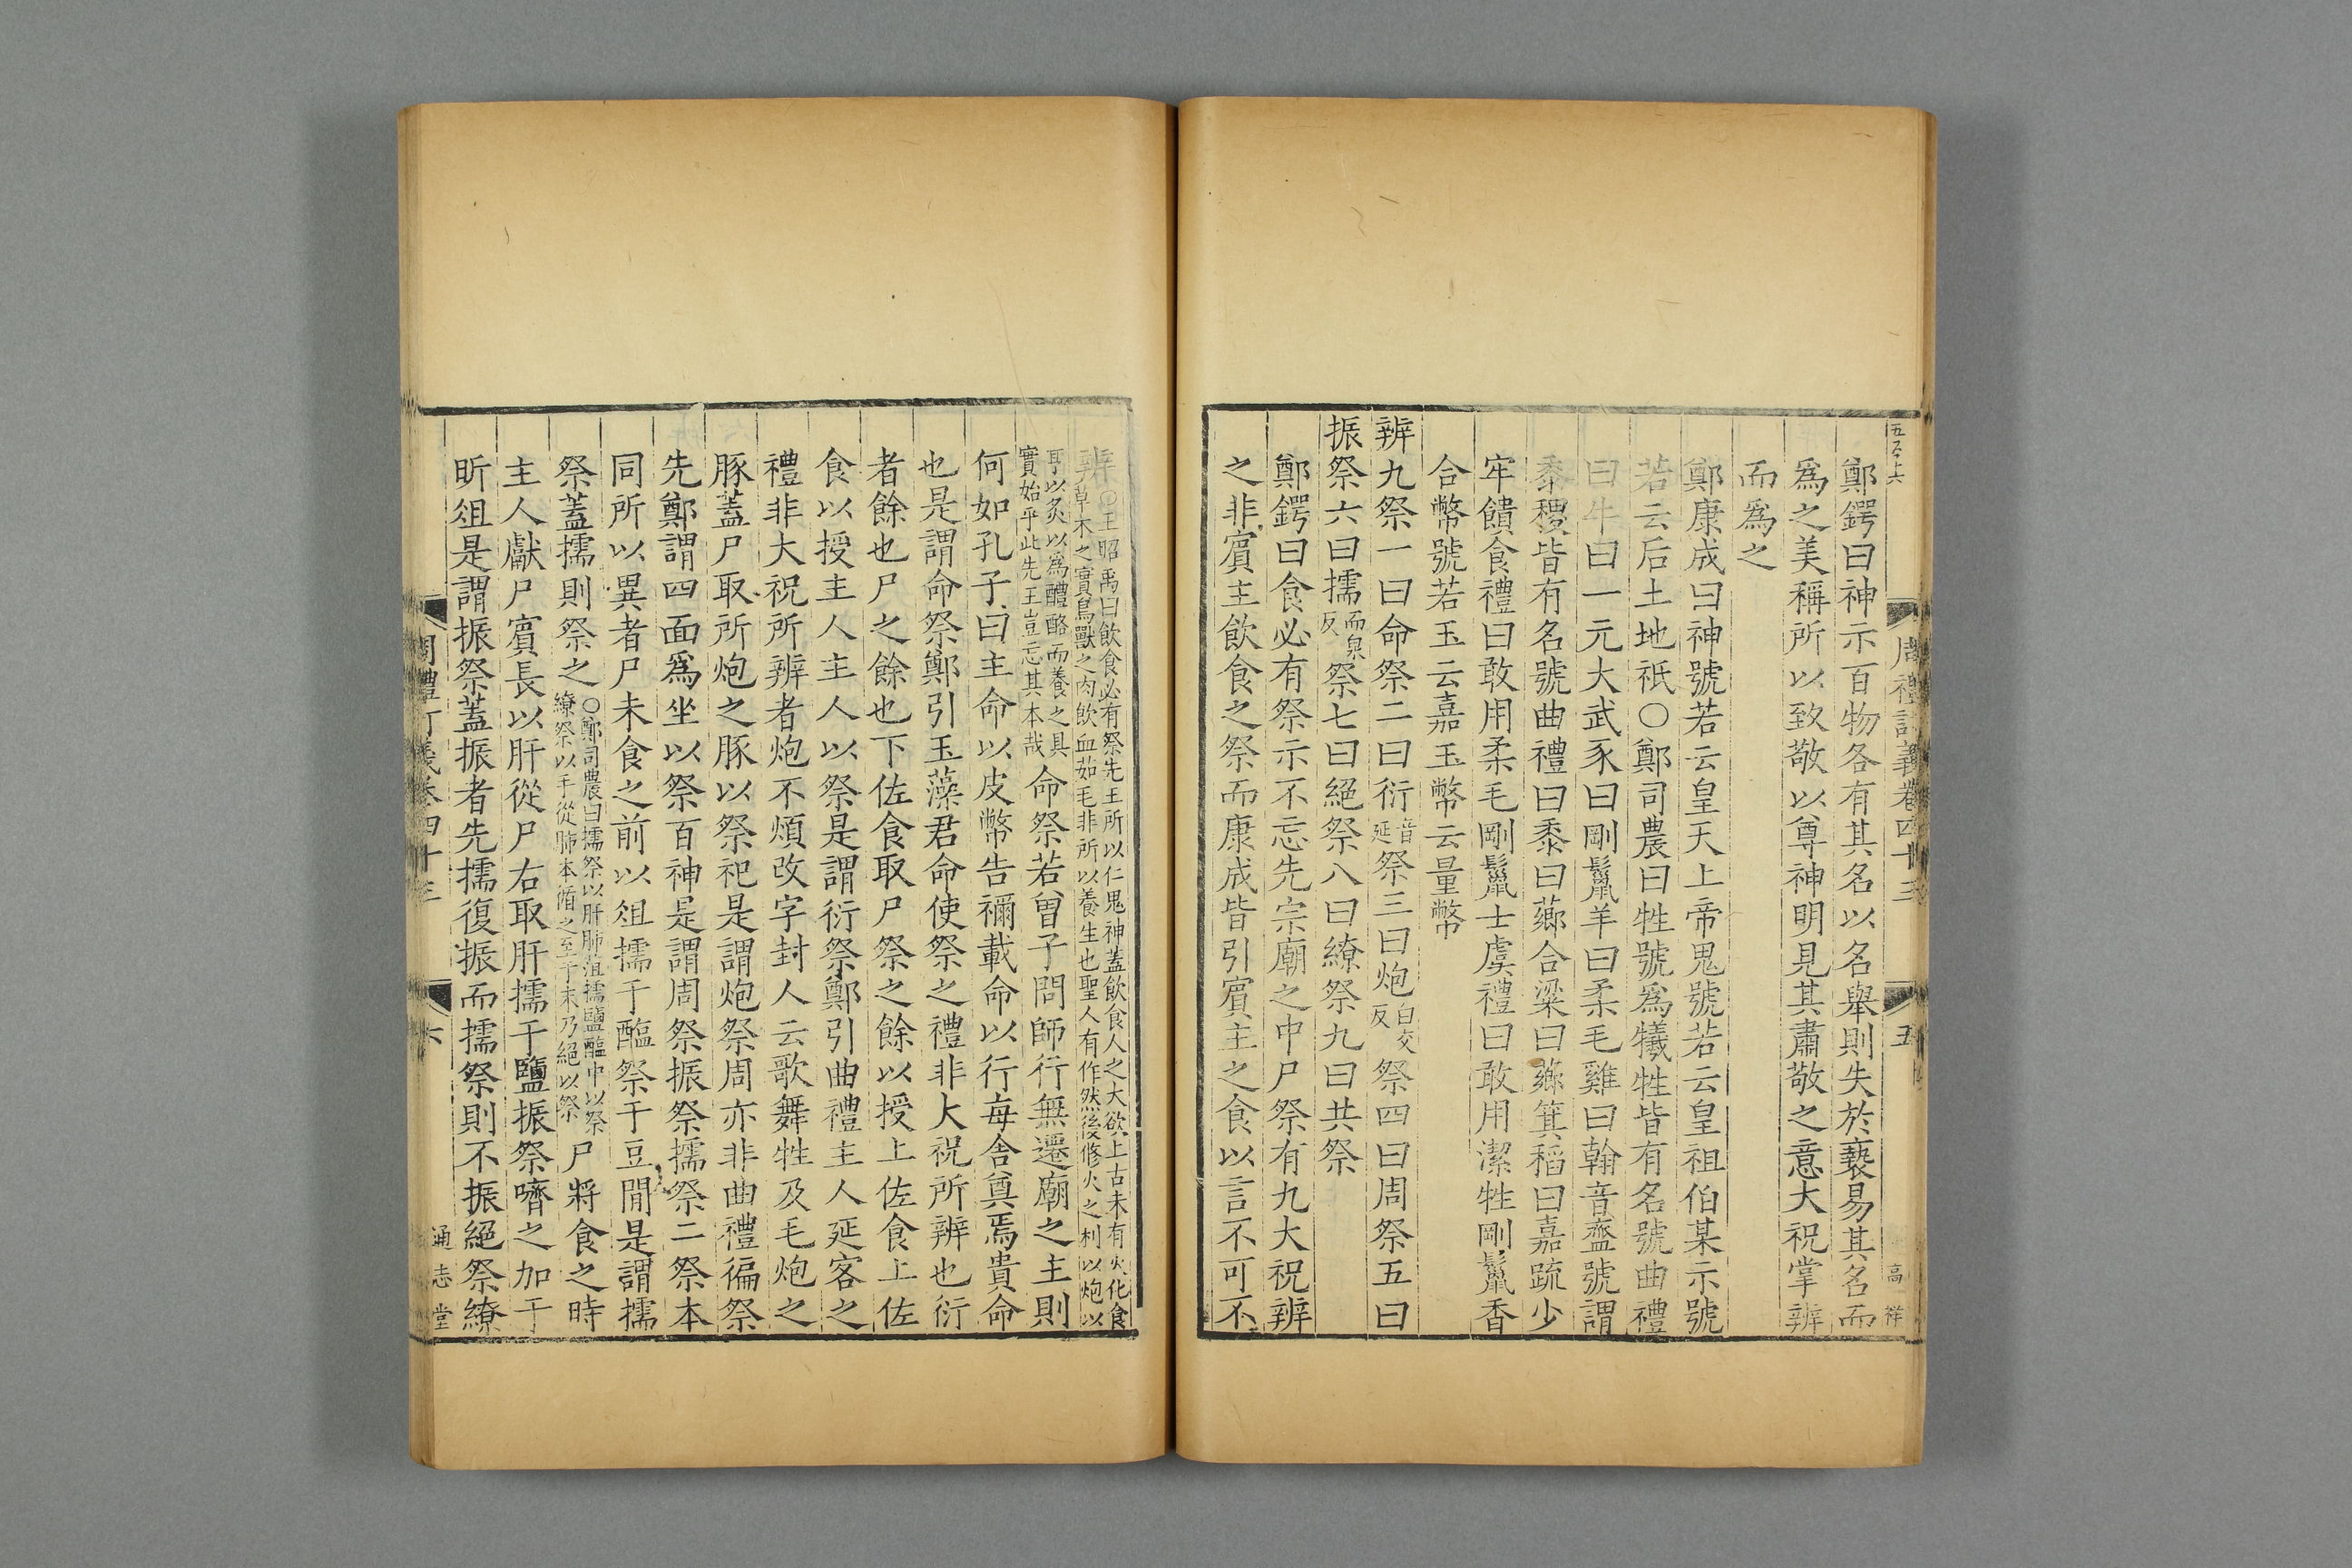 五百六
周禮訂義卷四十三
五
高祥
鄭鍔曰神示百物各有其名以名舉則失於䙝易其名而
爲之美稱所以致敬以尊神明見其肅敬之意大祝掌辨
而爲之
鄭康成曰神號若云皇天上帝鬼號若云皇祖伯某示號
若云后土地祇○鄭司農曰牲號爲犧牲皆有名號曲禮
曰牛曰一元大武豕曰剛鬣羊曰柔毛雞曰翰音齍號謂
黍稷皆有名號曲禮曰黍曰薌合粱曰薌箕稻曰嘉疏少
牢饋食禮曰敢用柔毛剛鬣士虞禮曰敢用潔牲剛鬣香
合幣號若玉云嘉玉幣云量幣
辨九祭一曰命祭二曰衍音延祭三曰炮白交反祭四曰周祭五曰
振祭六曰擩而泉反祭七曰絕祭八曰繚祭九曰共祭
鄭鍔曰食必有祭示不忘先宗廟之中尸祭有九大祝辨
之非賔主飲食之祭而康成皆引賔主之食以言不可不
辨○王昭禹曰飲食必有祭先王所以仁鬼神蓋飲食人之大欲上古未有火化食
草木之實鳥獸之肉飲血茹毛非所以養生也聖人有作然後修火之利以炮以
炙以爲醴酪而養之具
實始乎此先王豈忘其本哉命祭若曾子問師行無遷廟之主則
何如孔子曰主命以皮幣告禰載命以行每舍奠焉貴命
也是謂命祭鄭引玉藻君命使祭之禮非大祝所辨也衍
者餘也尸之餘也下佐食取尸祭之餘以授上佐食上佐
食以授主人主人以祭是謂衍祭鄭引曲禮主人延客之
禮非大祝所辨者炮不煩改字封人云歌舞牲及毛炮之
豚蓋尸取所炮之豚以祭祀是謂炮祭周亦非曲禮徧祭
先鄭謂四面爲坐以祭百神是謂周祭振祭擩祭二祭本
同所以異者尸未食之前以俎擩于醢祭于豆閒是謂擩
祭蓋擩則祭之○鄭司農曰擩祭以肝肺菹擩鹽醢中以祭
繚祭以手從肺本循之至于末乃絕以祭尸將食之時
主人獻尸賔長以肝從尸右取肝擩于鹽振祭嚌之加于
肵俎是謂振祭蓋振者先擩復振而擩祭則不振絕祭繚
周禮訂義卷四十三
六
通志堂